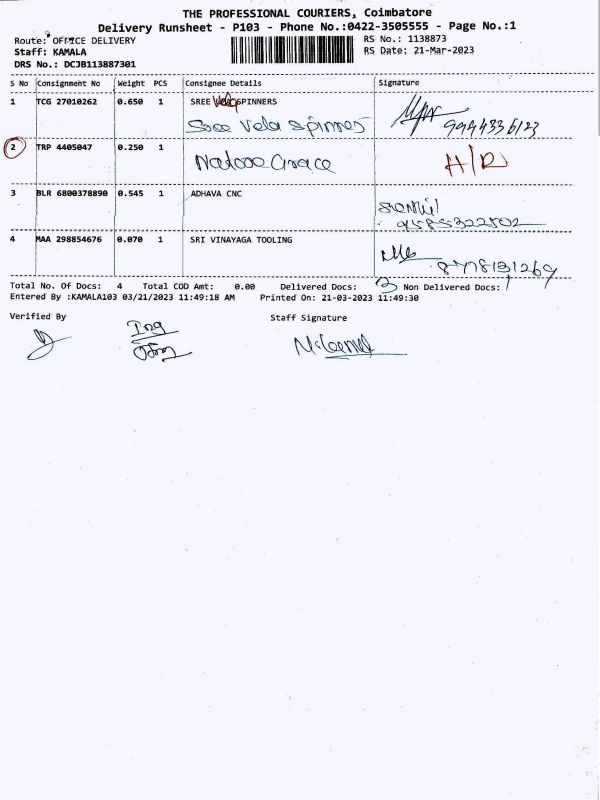 THE PROFESSIONAL COURIERS, Coimbatore
Delivery Runsheet - P103 - Phone No.:0422-3505555 - Page No.:1
Route: OFFICE DELIVERY RS No.: 1138873
Staff: KAMALA RS Date: 21-Mar-2023
DRS No.: DCJB113887301
S No Consignment No Weight PCS Consignee Details Signature
1 TCG 27010262 0.650 1 SREE Vela SPINNERS
Sree Vela Spinners 9944336123
2 TRP 4405047 0.250 1
Grace H/R
3 BLR 6800378890 0.545 1 ADHAVA CNC
9585322502
4 MAA 298854676 0.070 1 SRI VINAYAGA TOOLING
8478131269
Total No. Of Docs: 4 Total COD Amt: 0.00 Delivered Docs: 3 Non Delivered Docs: 1
Entered By :KAMALA103 03/21/2023 11:49:18 AM Printed On: 21-03-2023 11:49:30
Verified By Staff Signature